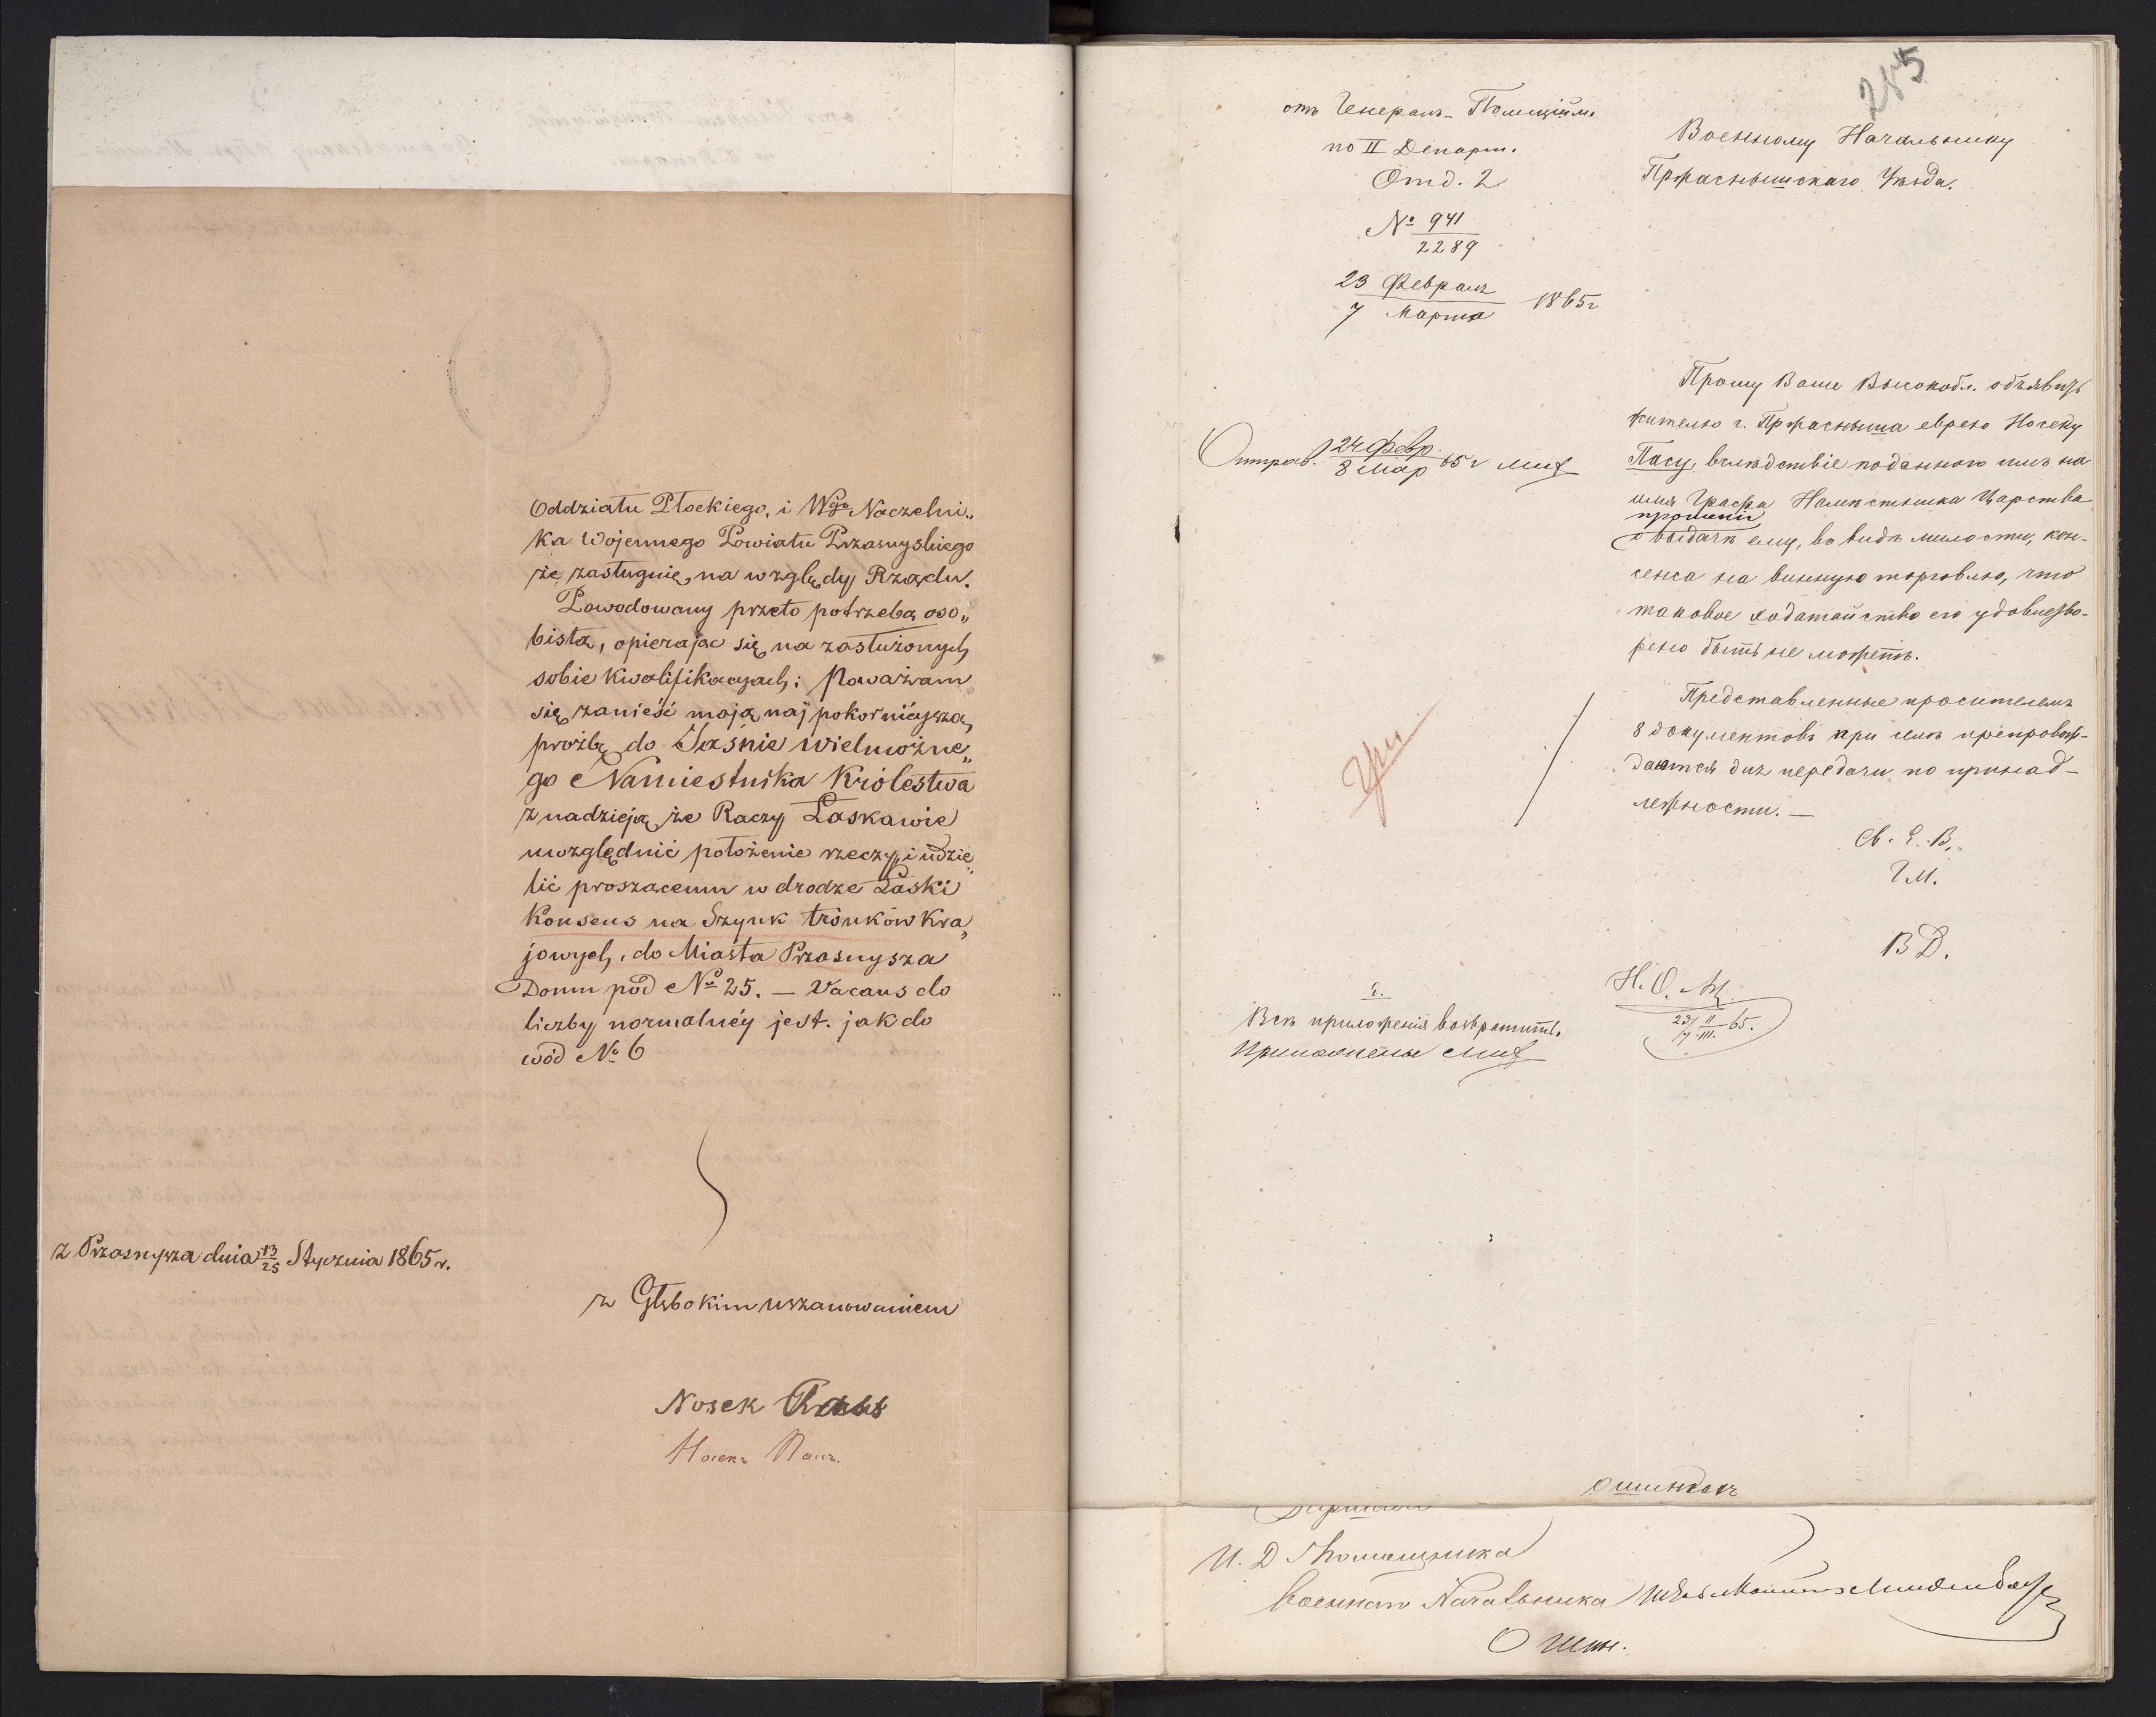 Oddziału Płockiego, i Wgo Naczelni„
ka Wojennego Powiatu Przasnyskiego
że zasługuię na względy Rządu.
Powodowany przeto potrzebą oso„
bistą, opierając się na zasłużonych
sobie kwalifikacyach: Poważam
się zanieść moją naj pokornieyszą
proźbę do Jaśnie wielmożne„
go Namiestnika Królestwa
z nadzieją że Raczy Łaskawie
uwzględnić położenie rzeczy, i udzie„
lić proszącemu w drodze Łaski
Konsens na Szynk trónków Kra„
jowych, do Miasta Przasnysza
Domu pod № 25. — Vacans do
liczby normalnéy jest. jak do
wód № 6
z Przasnysza dnia 13/25 Stycznia 1865 r.
z Głębokim uszanowaniem
Nosek Pass
Носекъ Пасъ.
285
отъ Генералъ-Полиційм.
по II Департ.
Отд. 2
№ 941/2289
23 Февраля
7 Марта 1865 г
Военному Начальнику
Пржаснышскаго Уѣзда.
Отправ. 24 Февр./8 Мар 65 г
Прошу Ваше Высокобл. объявить
жителю г. Пржасныша еврею Носеку
Пасу, вслѣдствіе поданнаго имъ на
имя Графа Намѣстника Царства
прошенія
о выдачѣ ему, въ видѣ милости, кон-
сенса на винную торговлю, что
таковое ходатайство его удовлетво-
рено быть не можетъ.
Представленные просителемъ
8 документовъ при семъ препровож-
даются для передачи по принад-
лежности. —
Св. Е. В.
Г М.
В Д.
Н. О.
23/7 II/III 65.
Всѣ приложенія возвратить.
Приложены
И. Д Помощника
Военнаго Начальника